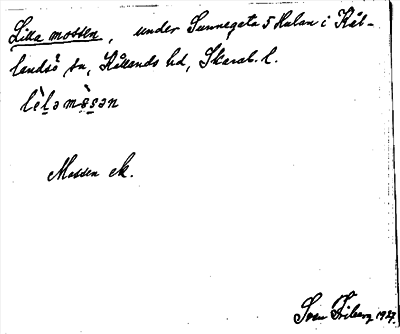 Lilla mossen, under Sunnegata 5 Hulan i Kål-
landsö sn, Kållands hd, Skarab. l.
lìlə mòsən
Mossen ek.
Sven Friberg 1927.